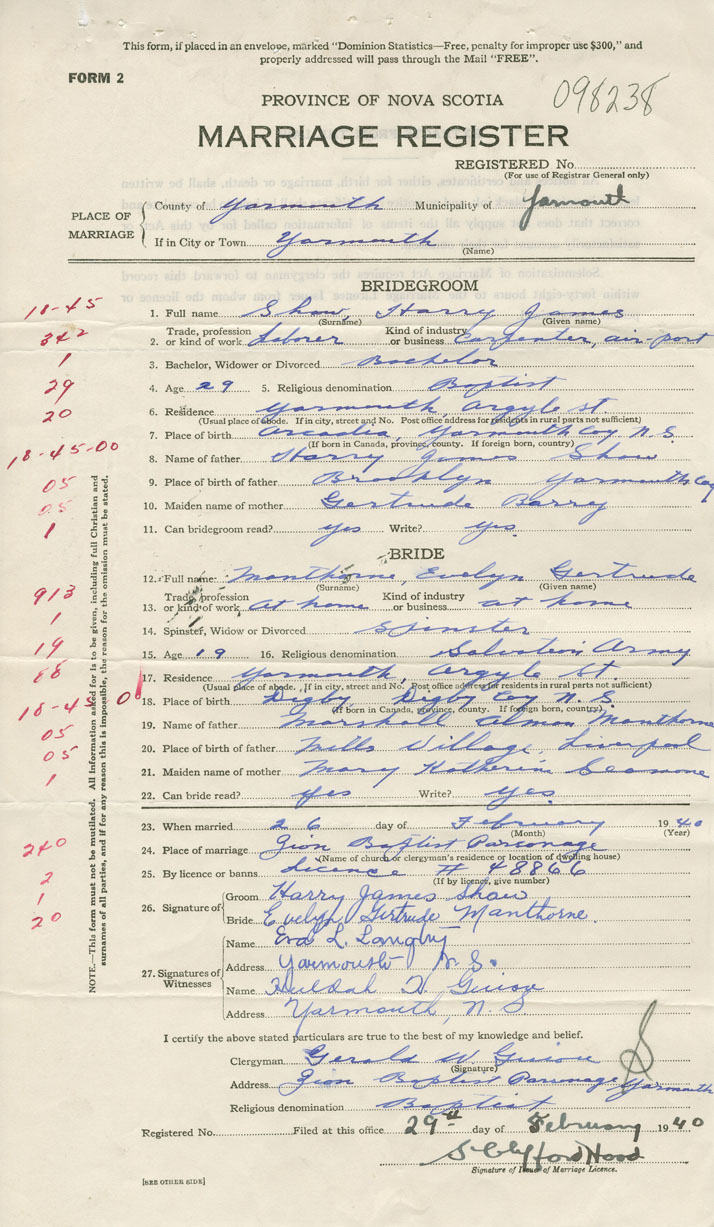 This form, if placed in an envelope, marked "Dominion Statistics—Free, penalty for improper use $300," and
properly addressed will pass through the Mail "FREE".
FORM 2
098238
PROVINCE OF NOVA SCOTIA
MARRIAGE REGISTER
REGISTERED No.
(For use of Registrar General only)
PLACE OF MARRIAGE
County of Yarmouth Municipality of Yarmouth
If in City or Town Yarmouth
(Name)
BRIDEGROOM
18-45 1. Full name Shaw, Harry James
(Surname) (Given name)
342 2. Trade, profession or kind of work Laborer Kind of industry or business Carpenter, air-port
1 3. Bachelor, Widower or Divorced Bachelor
29 4. Age 29 5. Religious denomination Baptist
20 6. Residence Yarmouth, Argyle St.
(Usual place of abode. If in city, street and No. Post office address for residents in rural parts not sufficient)
18-45-00 7. Place of birth Arcadia, Yarmouth Coy N.S.
(If born in Canada, province, county. If foreign born, country)
8. Name of father Harry James Shaw
05 9. Place of birth of father Brooklyn Yarmouth Coy
05 10. Maiden name of mother Gertrude Barry
1 11. Can bridegroom read? yes Write? yes
BRIDE
12. Full name: Manthorne, Evelyn Gertrude
(Surname) (Given name)
913 13. Trade, profession or kind of work At home Kind of industry or business at home
1 14. Spinster, Widow or Divorced Spinster
19 15. Age 19 16. Religious denomination Salvation Army
88 17. Residence Yarmouth, Argyle St.
(Usual place of abode. If in city, street and No. Post office address for residents in rural parts not sufficient)
18. Place of birth Digby Digby Coy N.S.
(If born in Canada, province, county. If foreign born, country)
19. Name of father Marshall Almon Manthorne
05 20. Place of birth of father Mills Village, Liverpool
05 21. Maiden name of mother Mary Katherine Seamone
1 22. Can bride read? yes Write? yes
23. When married 26 day of February 1940
(Month) (Year)
240 24. Place of marriage Zion Baptist Parsonage
(Name of church or clergyman's residence or location of dwelling house)
2 25. By licence or banns Licence # 48866
(If by licence, give number)
1 26. Signature of Groom Harry James Shaw
20 Bride Evelyn Gertrude Manthorne
27. Signatures of Witnesses
Name Eva L.
Address Yarmouth N.S.
Name Huldah
Address Yarmouth, N.S
I certify the above stated particulars are true to the best of my knowledge and belief.
Clergyman Gerald W.
(Signature)
Address Zion Baptist Parsonage Yarmouth
Religious denomination Baptist
Registered No. Filed at this office 29th day of February 1940
S. Clifford Hood
Signature of Issuer of Marriage Licence.
[SEE OTHER SIDE]
NOTE.—This form must not be mutilated. All information asked for is to be given, including full Christian and
surnames of all parties, and if for any reason this is impossible, the reason for the omission must be stated.